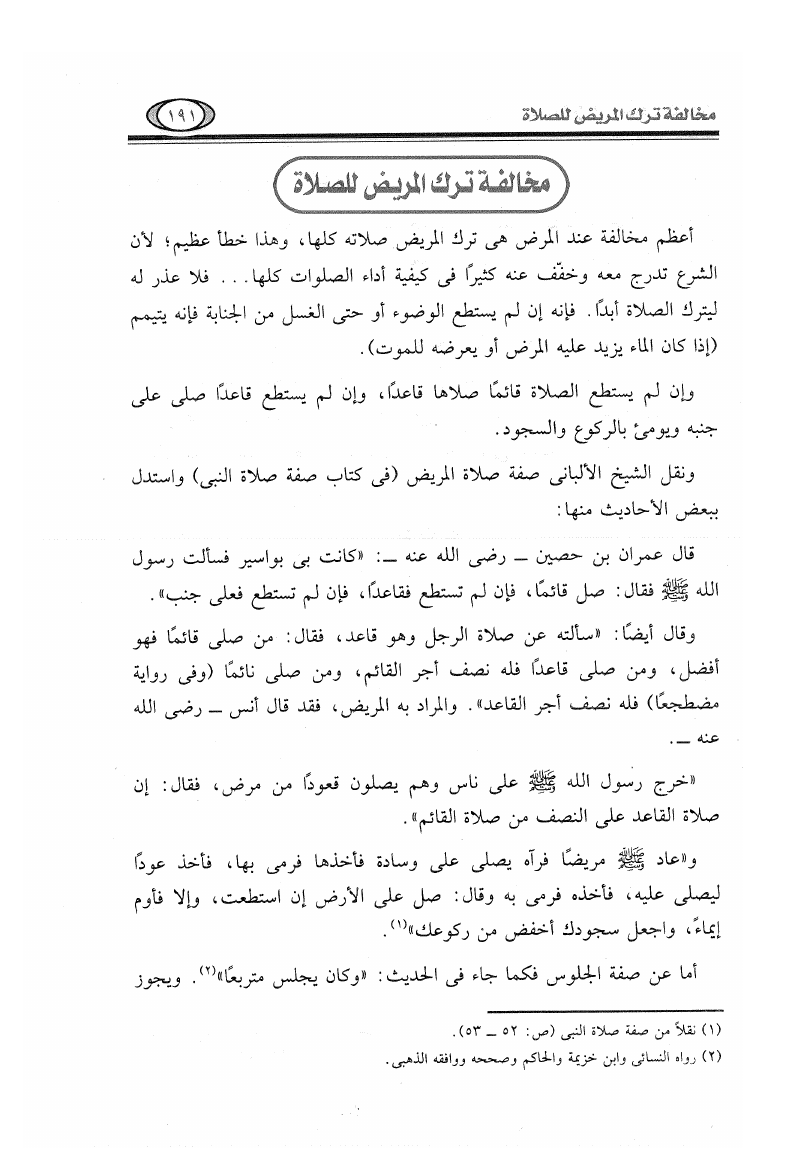 مخالفة ترك المريض للصلاة
١٩١
مخالفة ترك المريض للصلاة
أعظم مخالفة عند المرض هى ترك المريض صلاته كلها، وهذا خطأ عظيم؛ لأن
الشرع تدرج معه وخفّف عنه كثيرًا فى كيفية أداء الصلوات كلها... فلا عذر له
ليترك الصلاة أبدًا. فإنه إن لم يستطع الوضوء أو حتى الغسل من الجنابة فإنه يتيمم
(إذا كان الماء يزيد عليه المرض أو يعرضه للموت).
وإن لم يستطع الصلاة قائمًا صلاها قاعدًا، وإن لم يستطع قاعدًا صلى على
جنبه ويومئ بالركوع والسجود.
ونقل الشيخ الألبانى صفة صلاة المريض (فى كتاب صفة صلاة النبى) واستدل
ببعض الأحاديث منها:
قال عمران بن حصين ــ رضى الله عنه ــ: «كانت بى بواسير فسألت رسول
الله ﷺ فقال: صل قائمًا، فإن لم تستطع فقاعدًا، فإن لم تستطع فعلى جنب».
وقال أيضًا: «سألته عن صلاة الرجل وهو قاعد، فقال: من صلى قائمًا فهو
أفضل، ومن صلى قاعدًا فله نصف أجر القائم، ومن صلى نائمًا (وفى رواية
مضطجعًا) فله نصف أجر القاعد». والمراد به المريض، فقد قال أنس ــ رضى الله
عنه ــ.
«خرج رسول الله ﷺ على ناس وهم يصلون قعودًا من مرض، فقال: إن
صلاة القاعد على النصف من صلاة القائم».
و«عاد ﷺ مريضًا فرآه يصلى على وسادة فأخذها فرمى بها، فأخذ عودًا
ليصلى عليه، فأخذه فرمى به وقال: صل على الأرض إن استطعت، وإلا فأوم
إيماءً، واجعل سجودك أخفض من ركوعك»(١).
أما عن صفة الجلوس فكما جاء فى الحديث: «وكان يجلس متربعًا»(٢). ويجوز
(١) نقلاً من صفة صلاة النبى (ص: ٥٢ ــ ٥٣).
(٢) رواه النسائى وابن خزيمة والحاكم وصححه ووافقه الذهبى.